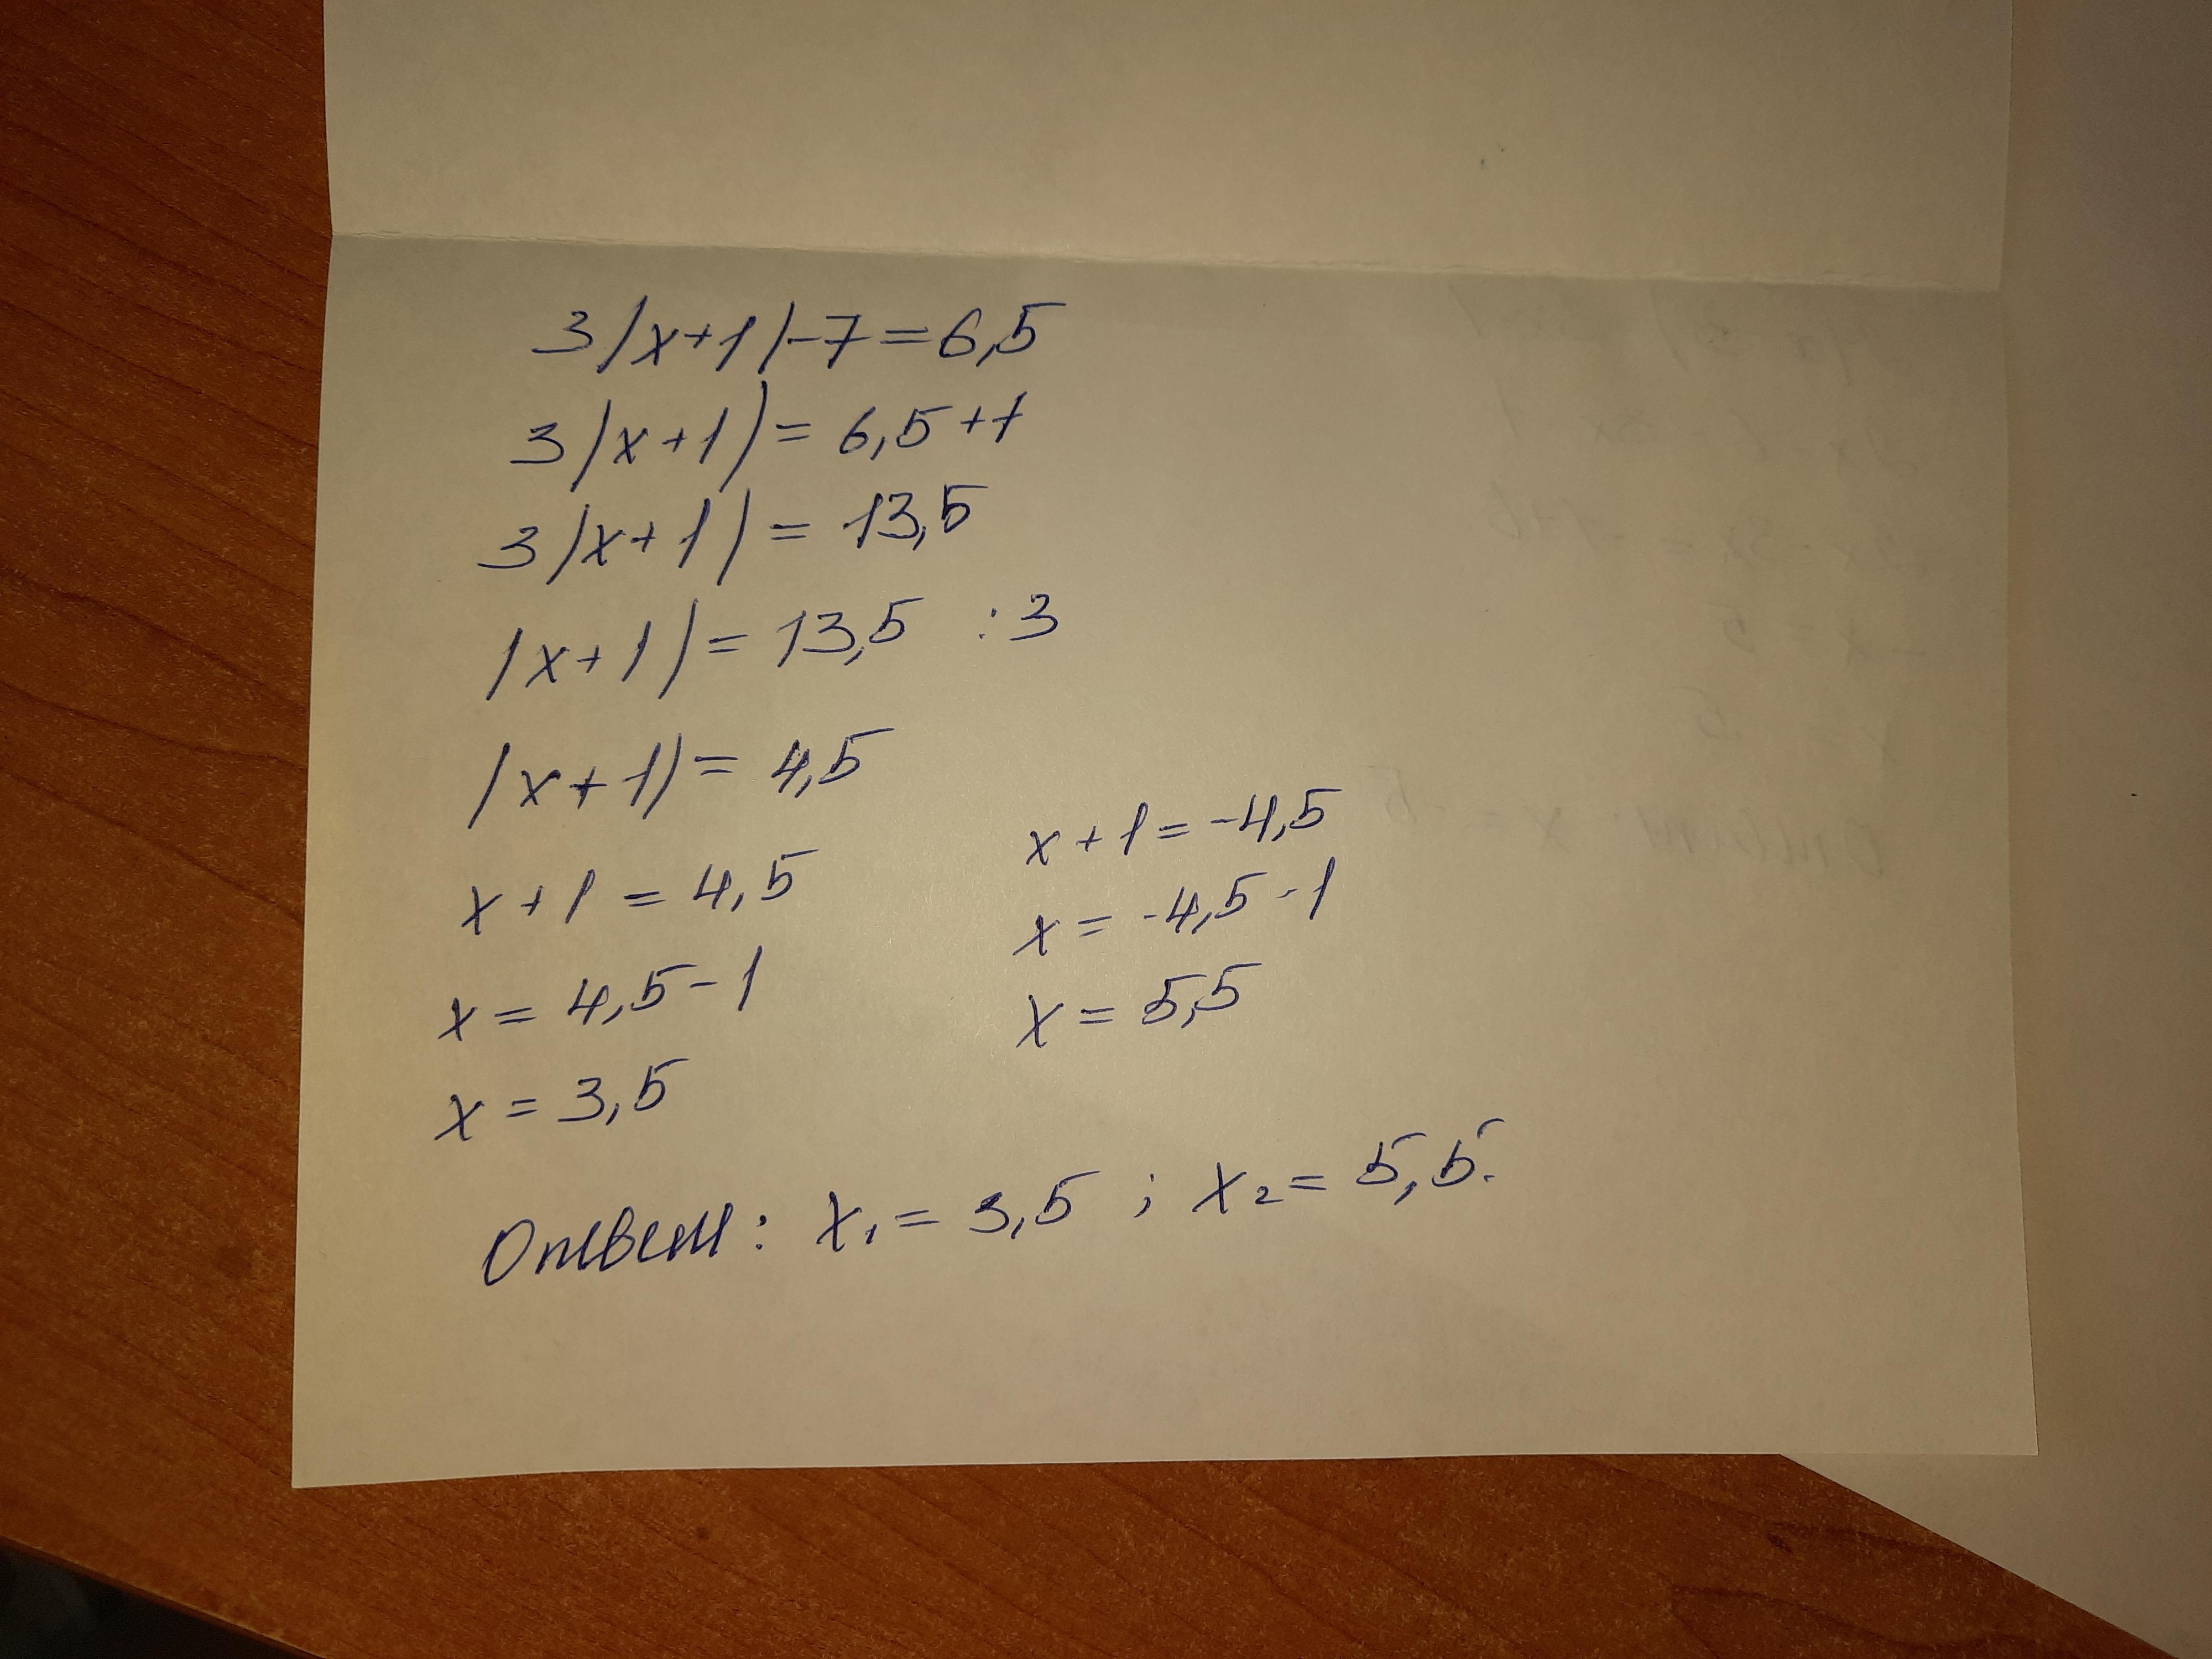 3|x+1|-7=6,5
3|x+1|=6,5+7
3|x+1|=13,5
|x+1|=13,5 :3
|x+1|=4,5
x+1=4,5
x=4,5-1
x=3,5
x+1=-4,5
x=-4,5-1
x=5,5
Ответ: x₁=3,5; x₂=5,5.